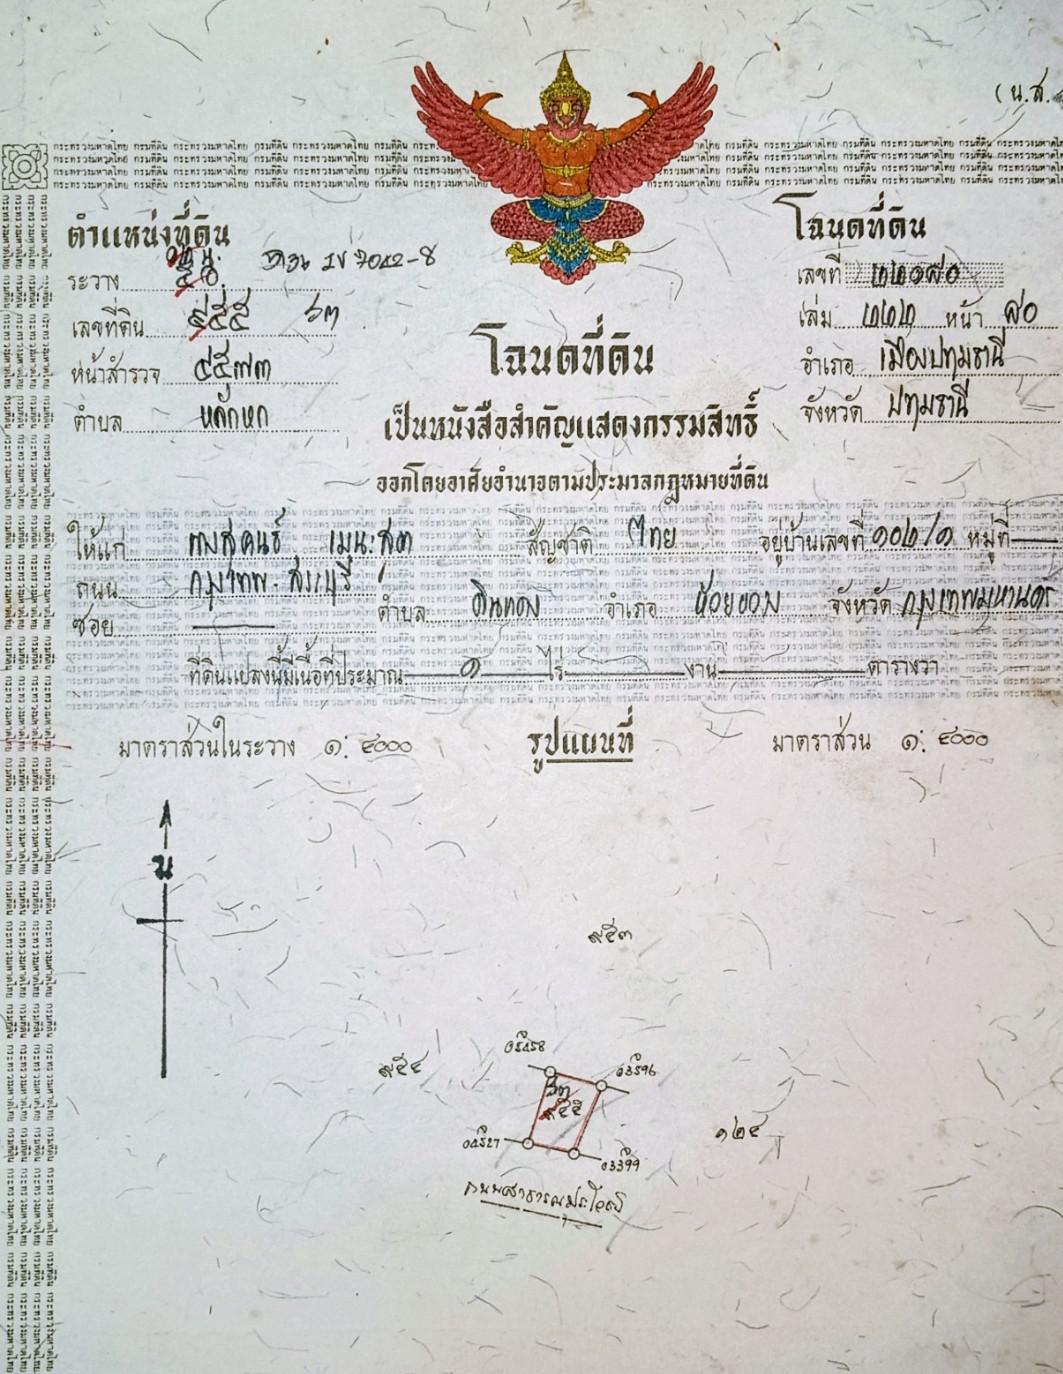 (น.ส.
กระทรวงมหาดไทย กรมที่ดิน กระทรวงมหาดไทย กรมที่ดิน กระทรวงมหาดไทย กรมที่ดิน
ตำแหน่งที่ดิน
โฉนดที่ดิน
ระวาง 7012-8
เลขที่ ๒๒๑๙๐
เลขที่ดิน ๙๕๕ ๖๓
เล่ม ๒๒๒ หน้า ๙๐
โฉนดที่ดิน
หน้าสำรวจ ๔๕๗๓
อำเภอ เมืองปทุมธานี
ตำบล หลักหก
จังหวัด ปทุมธานี
เป็นหนังสือสำคัญแสดงกรรมสิทธิ์
ออกโดยอาศัยอำนาจตามประมวลกฎหมายที่ดิน
ให้แก่ สัญชาติ ไทย อยู่บ้านเลขที่ ๑๐๒/๑ หมู่ที่
ถนน กรุงเทพ-
ซอย ตำบล อำเภอ ห้วยขวาง จังหวัด กรุงเทพมหานคร
ที่ดินแปลงนี้มีเนื้อที่ประมาณ ๑ ไร่ งาน ตารางวา
มาตราส่วนในระวาง ๑: ๔๐๐๐ รูปแผนที่ มาตราส่วน ๑: ๔๐๐๐
น
๙๕๓
๙๕๔
๖๓
๙๕๕
๑๒๔
ถนนสาธารณประโยชน์